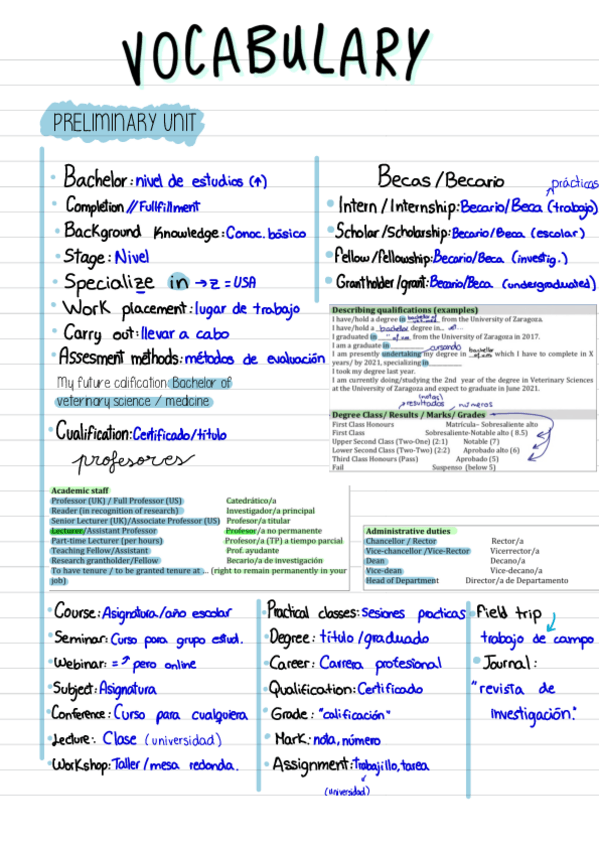 VOCABULARY
PRELIMINARY UNIT
Bachelor: nivel de estudios (↑)
Completion // Fullfillment
Background Knowledge: Conoc. básico
Stage: Nivel
Specialize in → z = USA
Work placement: lugar de trabajo
Carry out: llevar a cabo
Assesment methods: métodos de evaluación
My future calification: Bachelor of
veterinary science / medicine
Cualification: Certificado/título
profesores
Becas / Becario
prácticas
Intern / Internship: Becario/Beca (trabajo)
Scholar /Scholarship: Becario/Beca (escolar)
Fellow /fellowship: Becario/Beca (investig.)
Grantholder /grant: Becario/Beca (undergraduated)
Describing qualifications (examples)
I have/hold a degree in bachelor of from the University of Zaragoza.
I have/hold a bachelor degree in... of...
I graduated in from the University of Zaragoza in 2017.
I am a graduate in
cursando
I am presently undertaking my degree in bachelor of which I have to complete in X
years/ by 2021, specializing in
I took my degree last year.
I am currently doing/studying the 2nd year of the degree in Veterinary Sciences
at the University of Zaragoza and expect to graduate in June 2021.
(notas)
resultados números
Degree Class/ Results / Marks/ Grades
First Class Honours Matrícula– Sobresaliente alto
First Class Sobresaliente-Notable alto ( 8.5)
Upper Second Class (Two-One) (2:1) Notable (7)
Lower Second Class (Two-Two) (2:2) Aprobado alto (6)
Third Class Honours (Pass) Aprobado (5)
Fail Suspenso (below 5)
Academic staff
Professor (UK) / Full Professor (US) Catedrático/a
Reader (in recognition of research) Investigador/a principal
Senior Lecturer (UK)/Associate Professor (US) Profesor/a titular
Lecturer/Assistant Professor Profesor/a no permanente
Part-time Lecturer (per hours) Profesor/a (TP) a tiempo parcial
Teaching Fellow/Assistant Prof. ayudante
Research grantholder/Fellow Becario/a de investigación
To have tenure / to be granted tenure at ... (right to remain permanently in your
job)
Administrative duties
Chancellor / Rector Rector/a
Vice-chancellor /Vice-Rector Vicerrector/a
Dean Decano/a
Vice-dean Vice-decano/a
Head of Department Director/a de Departamento
Course: Asignatura/año escolar
Seminar: Curso para grupo estud.
Webinar: = ↗ pero online
Subject: Asignatura
Conference: Curso para cualquiera
Lecture: Clase (universidad)
Workshop: Taller / mesa redonda.
Practical classes: Sesiones practicas
Degree: título /graduado
Career: Carrera profesional
Qualification: Certificado
Grade: "calificación"
Mark: nota, número
Assignment: Trabajillo, tarea
(universidad)
Field trip
trabajo de campo
Journal:
"revista de
investigación."